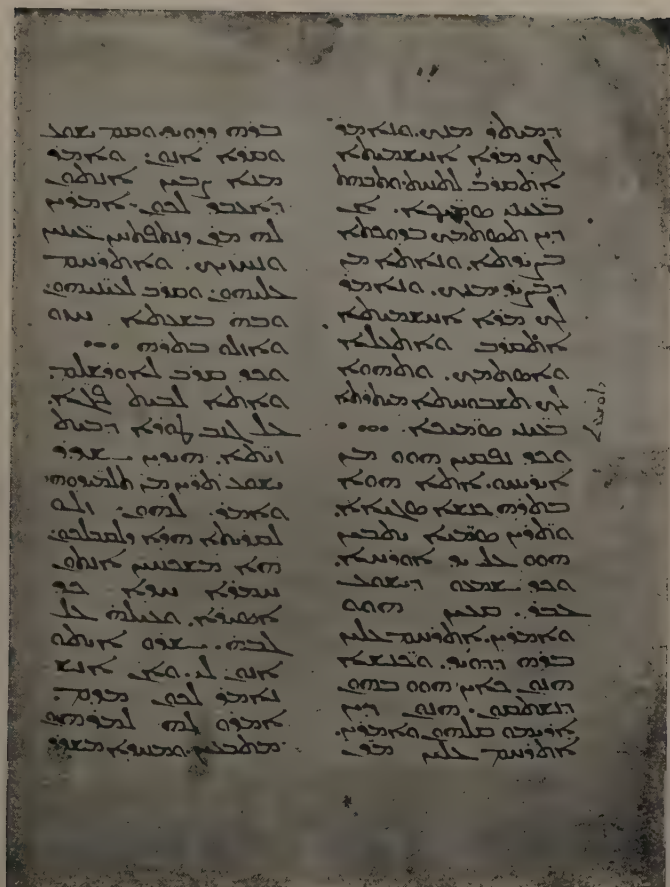 ܕܡܝܬܪ ܡܢܟ. ܘܢܐܡܪ
ܠܟ ܡܪܐ ܐܚܫܡܝܬܐ
ܐܬܩܪܒ ܠܬܚܬ ܘܬܒܗܬ
ܒܥܝܢܝ ܣܡܝܟܐ. ܐܢ
ܕܝܢ ܬܣܬܡܟ ܒܕܘܟܬܐ
ܒܨܝܪܬܐ. ܘܢܐܬܐ ܡܢ
ܕܒܨܝܪ ܡܢܟ. ܘܢܐܡܪ
ܠܟ ܡܪܐ ܐܚܫܡܝܬܐ
ܐܬܩܪܒ ܘܐܬܥܠܐ
ܘܐܣܬܡܟ. ܘܬܗܘܐ
ܠܟ ܬܫܒܘܚܬܐ ܡܝܬܪܬܐ
ܒܥܝܢܝ ܣܡܝܟܐ.
ܘܟܕ ܢܦܩܝܢ ܗܘܘ ܡܢ
ܐܝܪܝܚܘ. ܐܬܐ ܗܘܐ
ܒܬܪܗ ܟܢܫܐ ܣܓܝܐܐ.
ܘܬܪܝܢ ܣܡܝܐ ܝܬܒܝܢ
ܗܘܘ ܥܠ ܝܕ ܐܘܪܚܐ.
ܘܟܕ ܫܡܥܘ ܕܝܫܘܥ
ܥܒܪ. ܩܥܝܢ ܗܘܘ
ܘܐܡܪܝܢ. ܐܬܪܚܡ ܥܠܝܢ
ܒܪܗ ܕܕܘܝܕ. ܘܟܢܫܐ
ܗܢܘܢ ܟܐܝܢ ܗܘܘ ܒܗܘܢ
ܕܢܫܬܩܘܢ. ܗܢܘܢ ܕܝܢ
ܐܪܝܡܘ ܩܠܗܘܢ ܘܐܡܪܝܢ.
ܐܬܪܚܡ ܥܠܝܢ ܡܪܢ
ܒܪܗ ܕܕܘܝܕ ܘܩܡ ܝܫܘܥ
ܘܩܪܐ ܐܢܘܢ: ܘܐܡܪ
ܡܢܐ ܨܒܝܢ ܐܢܬܘܢ
ܕܐܥܒܕ ܠܟܘܢ. ܐܡܪܝܢ
ܠܗ ܡܪܢ ܕܢܬܦܬܚܢ ܥܝܢܝܢ
ܘܢܚܙܝܟ. ܘܐܬܪܚܡ
ܥܠܝܗܘܢ: ܘܩܪܒ ܠܥܝܢܝܗܘܢ:
ܘܒܗ ܒܫܥܬܐ ܚܙܘ
ܘܐܙܠܘ ܒܬܪܗ
ܘܟܕ ܩܪܒ ܠܐܘܪܫܠܡ:
ܘܐܬܐ ܠܒܝܬ ܦܓܐ.
ܥܠ ܓܢܒ ܛܘܪܐ ܕܒܝܬ
ܙܝܬܐ. ܗܝܕܝܢ ܫܕܪ
ܝܫܘܥ ܬܪܝܢ ܡܢ ܬܠܡܝܕܘܗܝ
ܘܐܡܪ ܠܗܘܢ: ܙܠܘ
ܠܩܪܝܬܐ ܗܕܐ ܕܠܩܘܒܠܟܘܢ:
ܗܐ ܡܫܟܚܝܢ ܐܢܬܘܢ
ܚܡܪܐ ܚܕܐ ܟܕ
ܐܣܝܪܐ. ܘܥܝܠܗ ܥܠ
ܓܢܒܗ. ܫܪܘ ܐܝܬܘ
ܐܢܘܢ ܠܝ. ܘܐܢ ܐܢܫ
ܢܐܡܪ ܠܟܘܢ ܡܕܡ:
ܐܡܪܘ ܠܗ ܠܡܪܗܘܢ
ܡܬܒܥܝܢ. ܘܡܚܕܐ ܡܫܕܪ